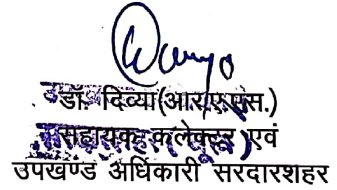 डॉ. दिव्या(आर.ए.एस.)
सहायक कलेक्टर एवं
उपखण्ड अधिकारी सरदारशहर